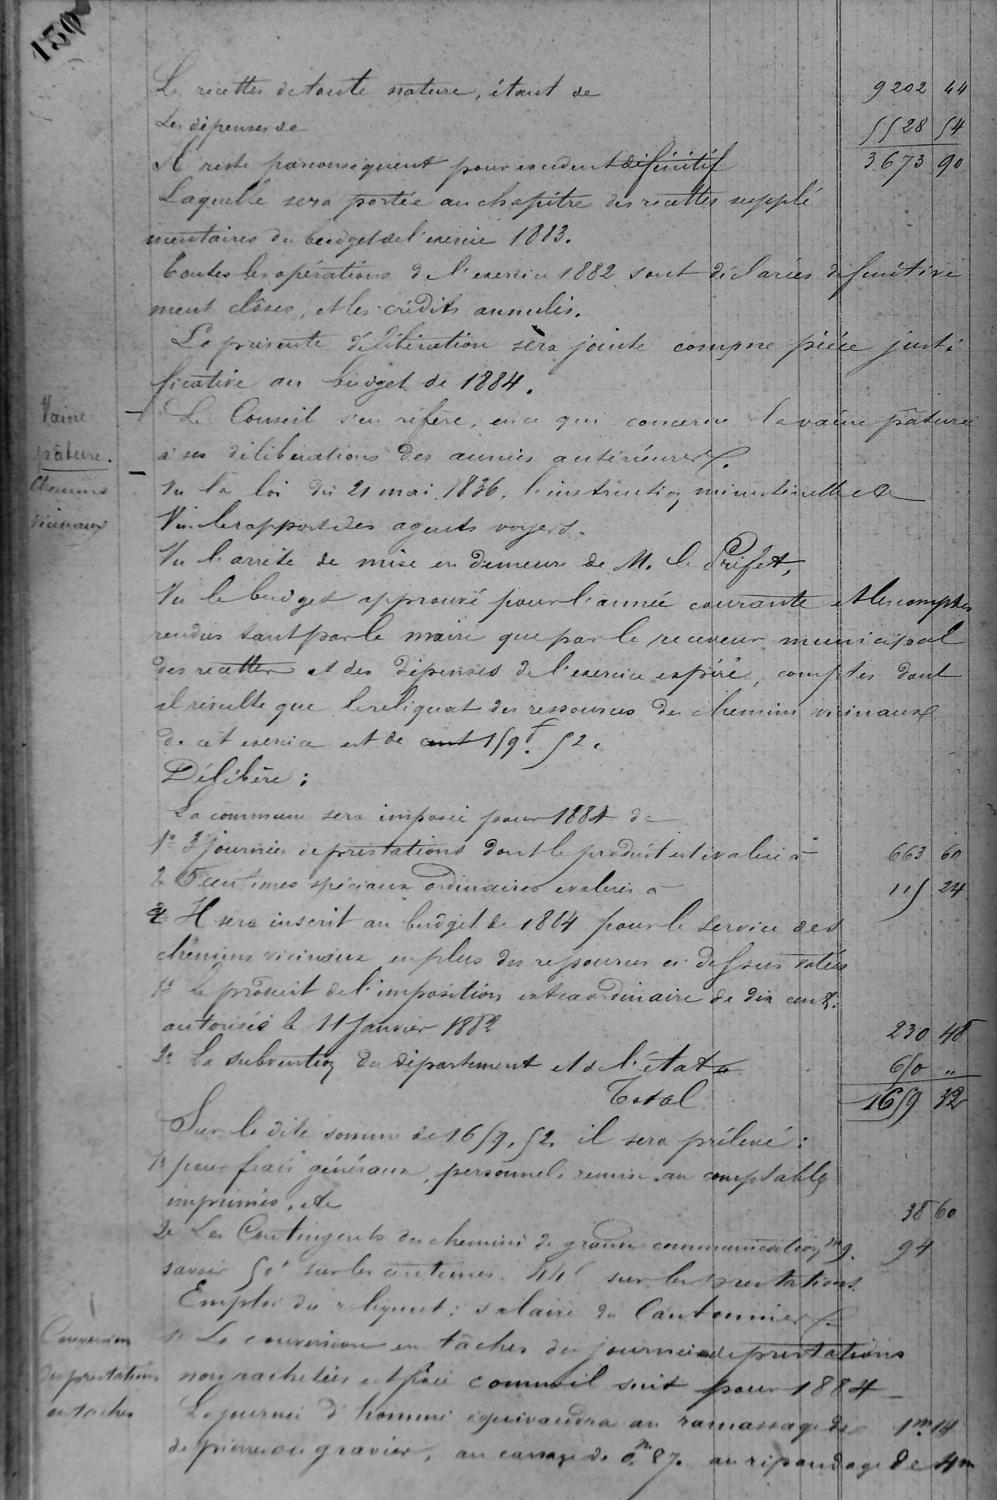 150
Les recettes de toute nature, étant de 9202 44
Les dépenses de 5528 54
Il reste par conséquent pour excédent définitif 3673 90
Laquelle sera portée au chapitre des recettes supplé
mentaires du budget de l'exercice 1883.
Toutes les opérations de l'exercice 1882 sont déclarées définitive
ment closes, et les crédits annulés.
La présente délibération sera jointe comme pièce justi
ficative au budget de 1884.
Vaine
pâture.
Le Conseil s'en réfère, en ce qui concerne la vaine pâture
à ses délibérations des années antérieures.
Chemins
vicinaux
Vu la loi du 21 mai 1836, l'instruction ministérielle
Vu les rapports des agents voyers.
Vu l'arrêté de mise en demeure de M. le Préfet,
Vu le budget approuvé pour l'année courante et les comptes
rendus tant par le maire que par le receveur municipal
des recettes et des dépenses de l'exercice expiré, comptes dont
il résulte que le reliquat des ressources des chemins vicinaux
de cet exercice est de 159f. 52.
Délibère :
La commune sera imposée pour 1884 de
1º 3 journées de prestations dont le produit est évalué à 663 60
2º 5 centimes spéciaux ordinaires évalués à 115 24
2º Il sera inscrit au budget de 1884 pour le service des
chemins vicinaux en plus des ressources ci dessus votées
1º Le produit de l'imposition extraordinaire de dix cent.
autorisée le 11 Janvier 230 48
2º La subvention du département et de l'état 650 "
Total 1659 32
Sur la dite somme de 1659,52 il sera prélevé :
1º pour frais généraux, personnel, remise au comptable
imprimés, etc 38 60
2º Les Contingents des chemins de grande communication 94
savoir 50f sur les centimes. 44f sur les prestations.
Emploi du reliquat : salaire du Cantonnier
Conversion
des prestations
en tâches
1º La conversion en tâches des journées de prestations
non rachetées est fixée comme il suit pour 1884
La journée d'homme équivaudra au ramassage de 1m 14
de pierre ou gravier, au cassage de 0m 87. au répandage de 4m